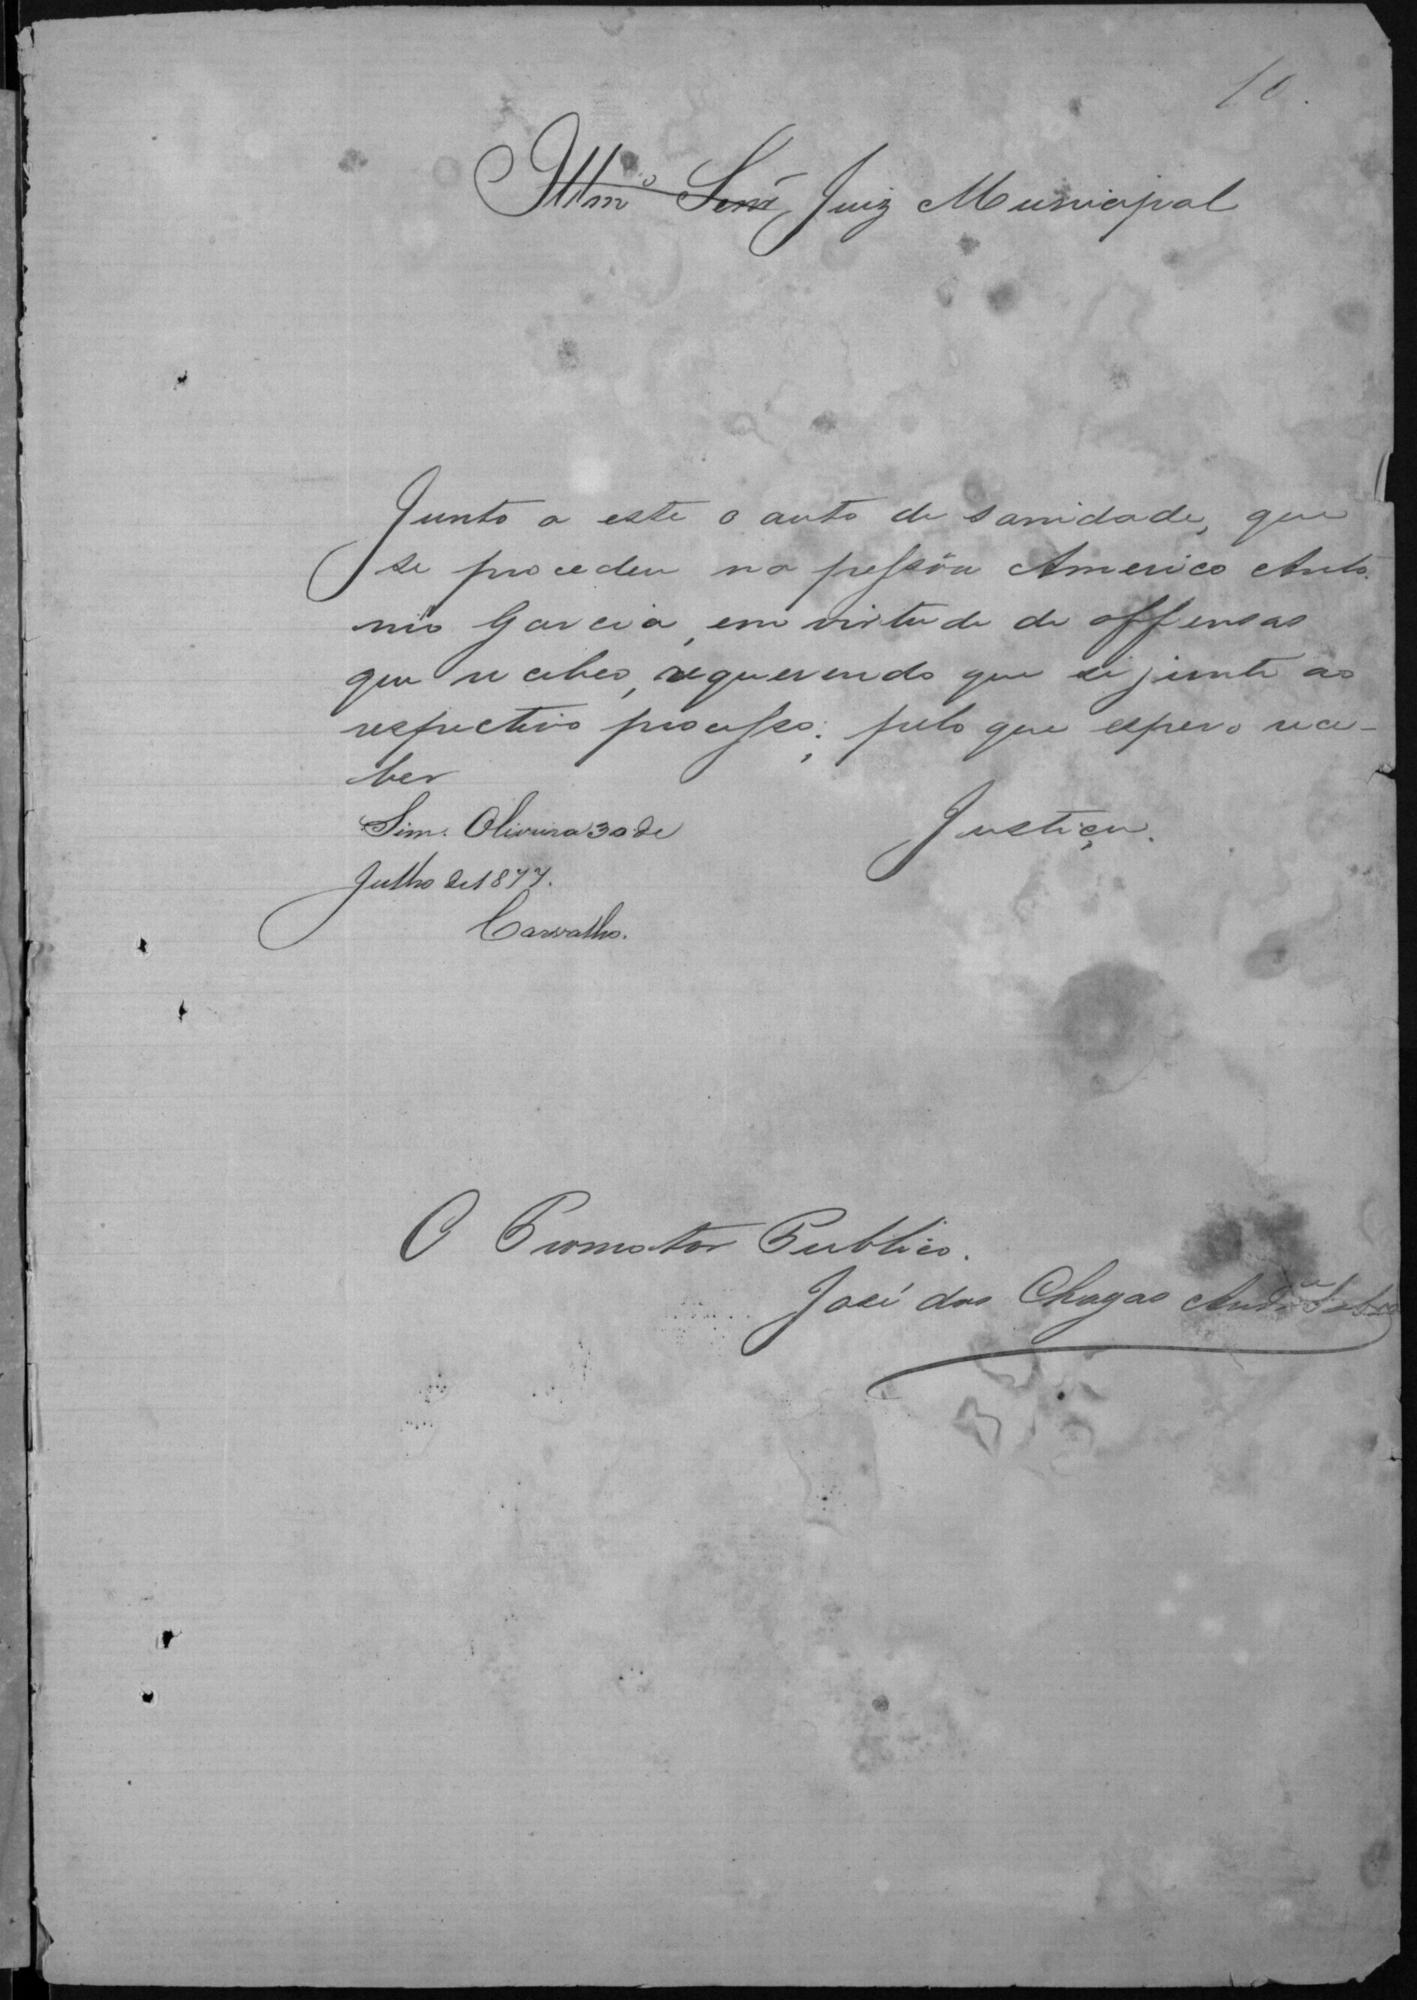 10.
Illmº Senr, Juiz Municipal
Junto a este o auto de sanidade, que
se procedeu na pessôa Americo Anto
nio Garcia, em virtude de offensas
que recebeo, requerendo que se junte ao
respectivo processo; pelo que espero rece-
ber
Justiça.
Sim. Oliveira 30 de
Julho de 1877.
Carvalho.
O Promotor Publico.
José das Chagas Andre